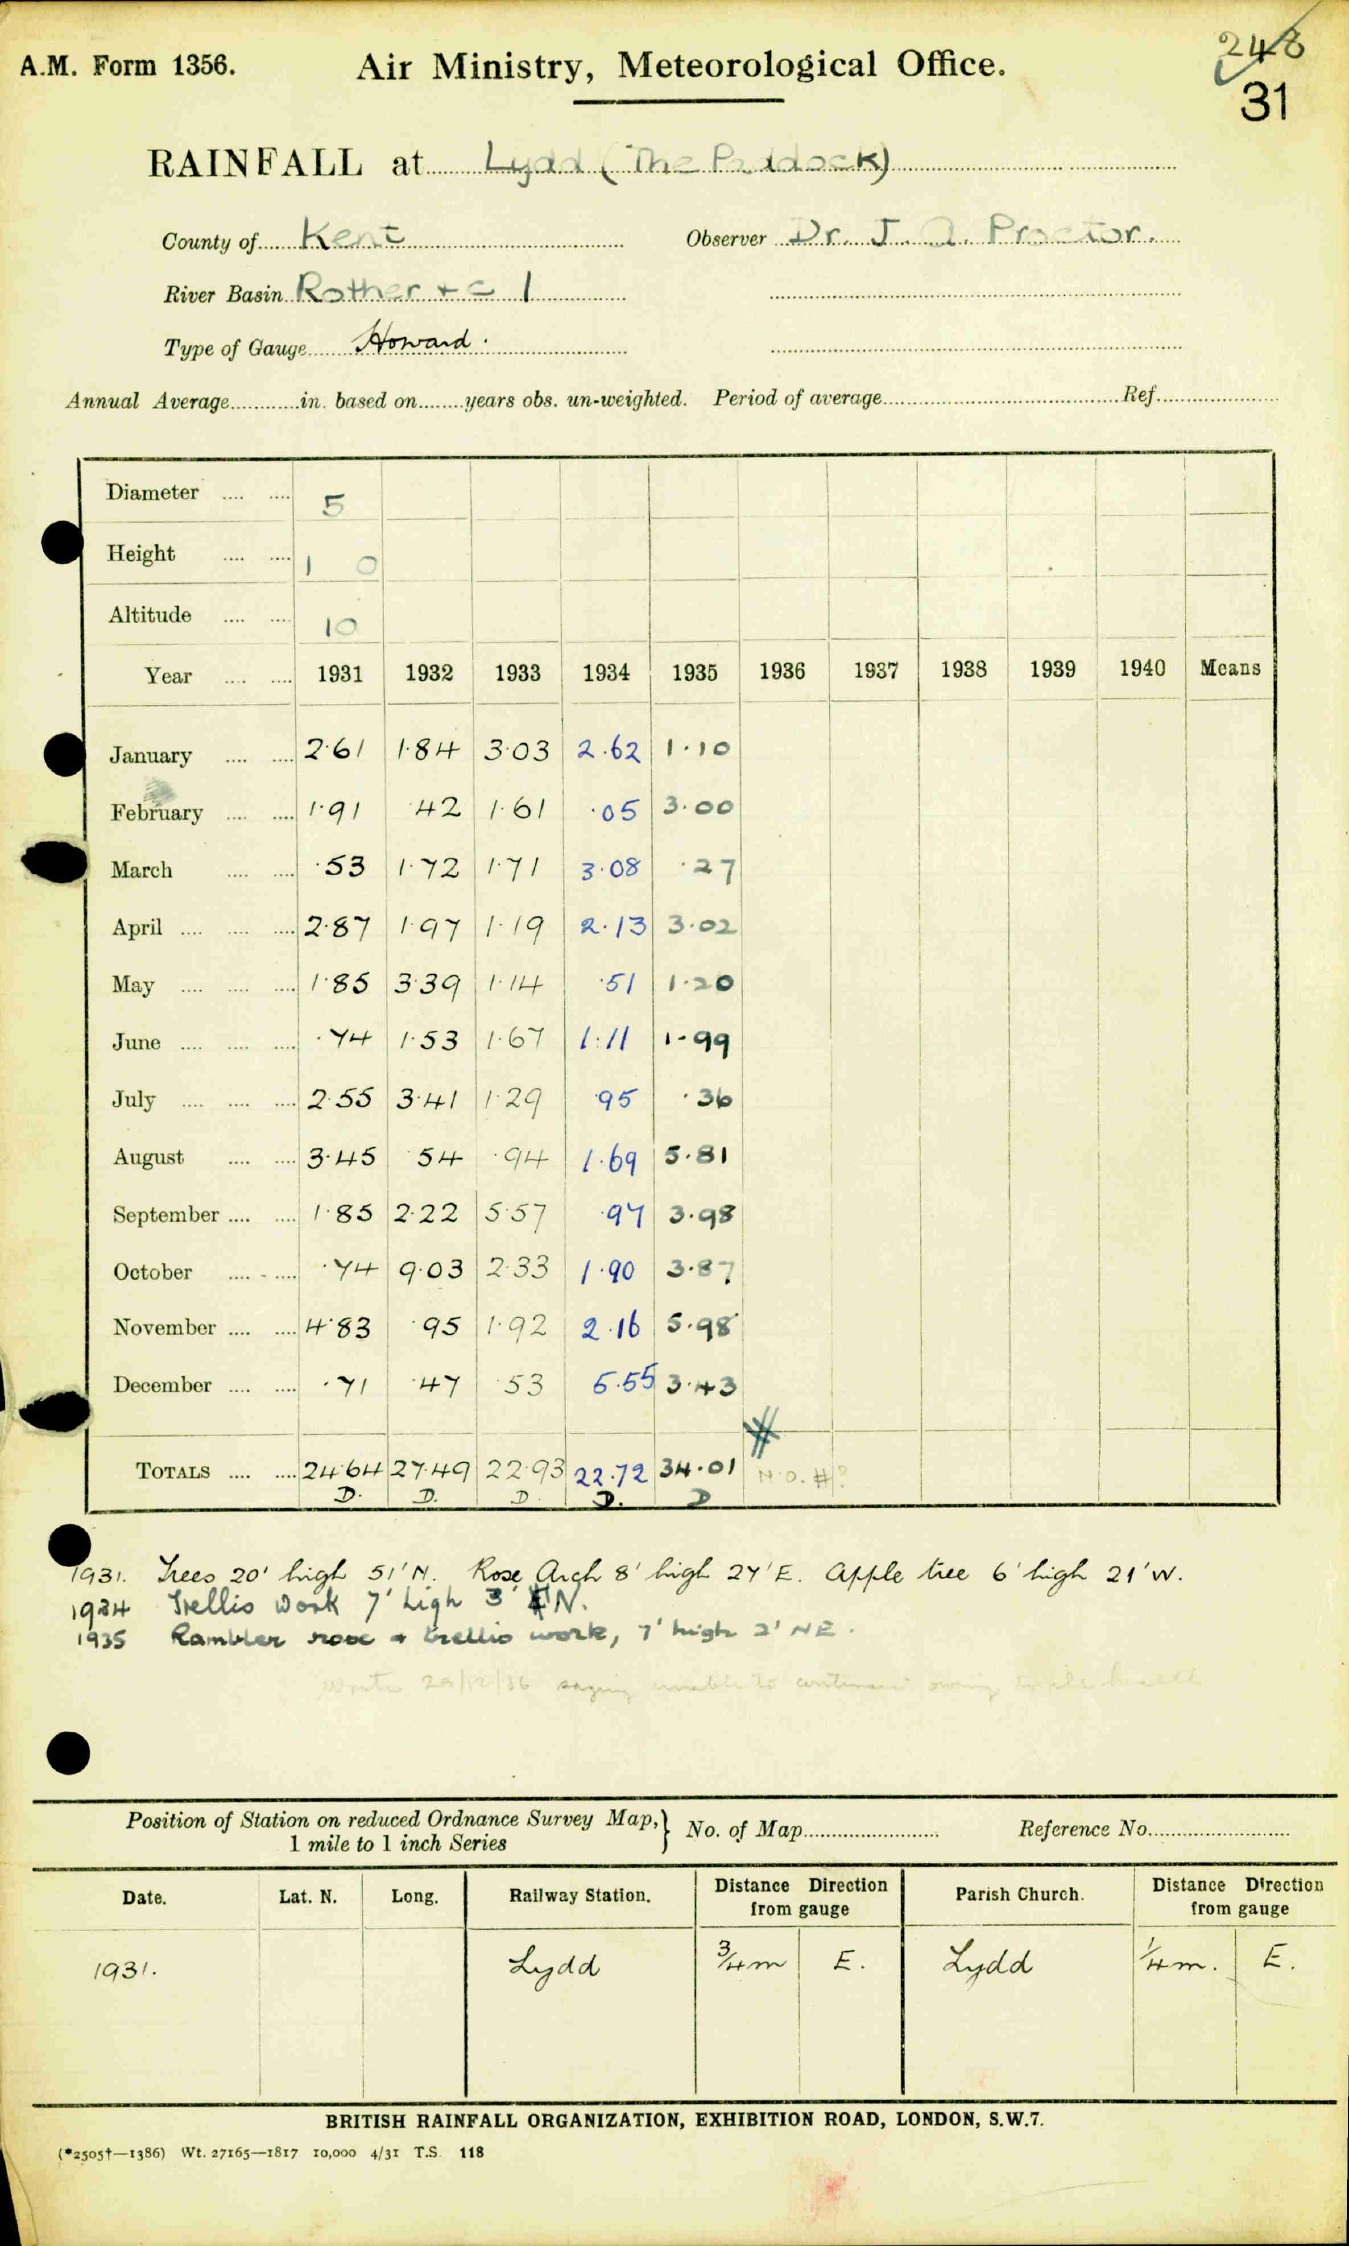 248
A.M. Form 1356. Air Ministry, Meteorological Office. 31
RAINFALL at Lydd (The Paddock)
County of Kent Observer Dr. J. A. Proctor.
River Basin Rother +c 1
Type of Gauge Howard.
Annual Average in. based on years obs. un-weighted. Period of average Ref.
Diameter 5
Height 1 0
Altitude 10
Year 1931 1932 1933 1934 1935 1936 1937 1938 1939 1940 Means
January 2·61 1·84 3·03 2·62 1·10
February 1·91 ·42 1·61 ·05 3·00
March ·53 1·72 1·71 3·08 ·27
April 2·87 1·97 1·19 2·13 3·02
May 1·85 3·39 1·14 ·51 1·20
June ·74 1·53 1·67 1·11 1·99
July 2·55 3·41 1·29 ·95 ·36
August 3·45 ·54 ·94 1·69 5·81
September 1·85 2·22 5·57 ·97 3·98
October ·74 9·03 2·33 1·90 3·87
November 4·83 ·95 1·92 2·16 5·98
December ·71 ·47 ·53 5·55 3·43
#
TOTALS 24·64 27·49 22·93 22·72 34·01 N.O. #?
D. D. D. D. D
1931. Trees 20' high 51' N. Rose Arch 8' high 27' E. Apple tree 6' high 21' W.
1934 Trellis Work 7' high 3' N.
1935 Rambler rose & trellis work, 7' high 2' NE.
Wrote 28/12/36 saying unable to continue owing to ill health
Position of Station on reduced Ordnance Survey Map, } No. of Map Reference No.
1 mile to 1 inch Series
Date. Lat. N. Long. Railway Station. Distance Direction from gauge Parish Church. Distance Direction from gauge
1931. Lydd 3/4 m E. Lydd 1/4 m. E.
BRITISH RAINFALL ORGANIZATION, EXHIBITION ROAD, LONDON, S.W.7.
(*2505†—1386) Wt. 27165—1817 10,000 4/31 T.S. 118